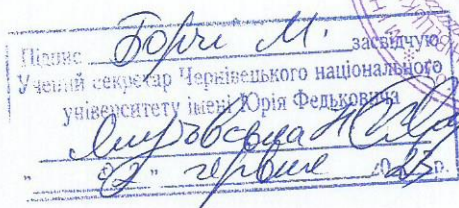 Підпис Борчі М. засвідчую
Учений секретар Чернівецького національного
університету імені Юрія Федьковича
" 02 " червня 2023 р.